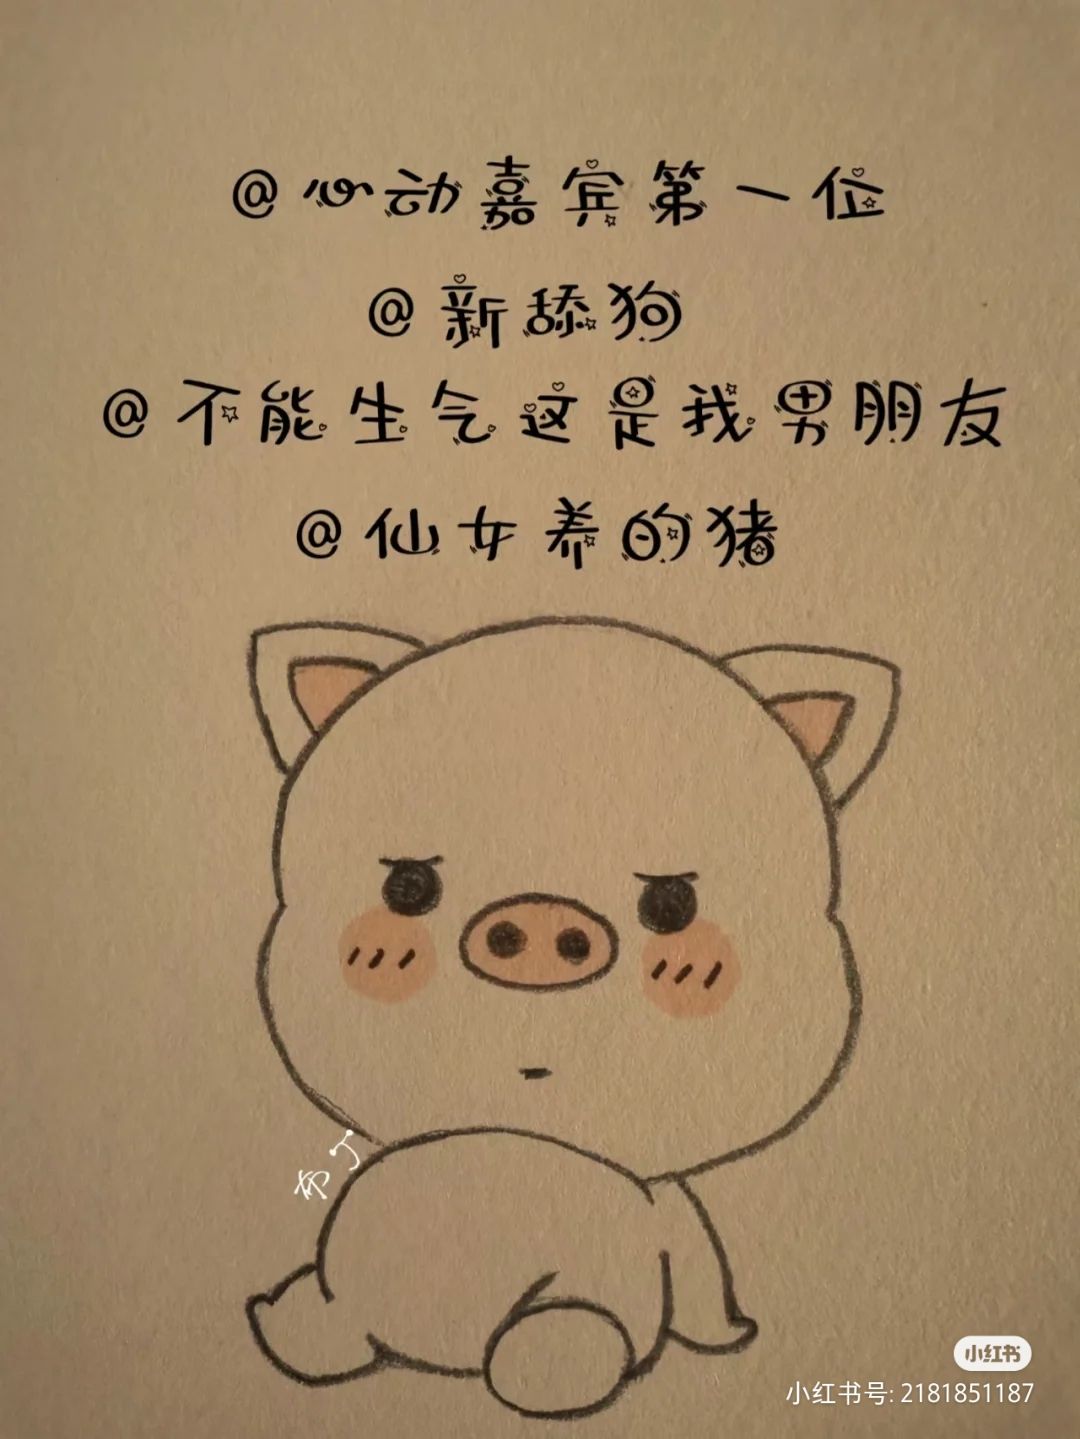 @心动嘉宾第一位
@新舔狗
@不能生气这是我男朋友
@仙女养的猪
布丁
小红书
小红书号: 2181851187